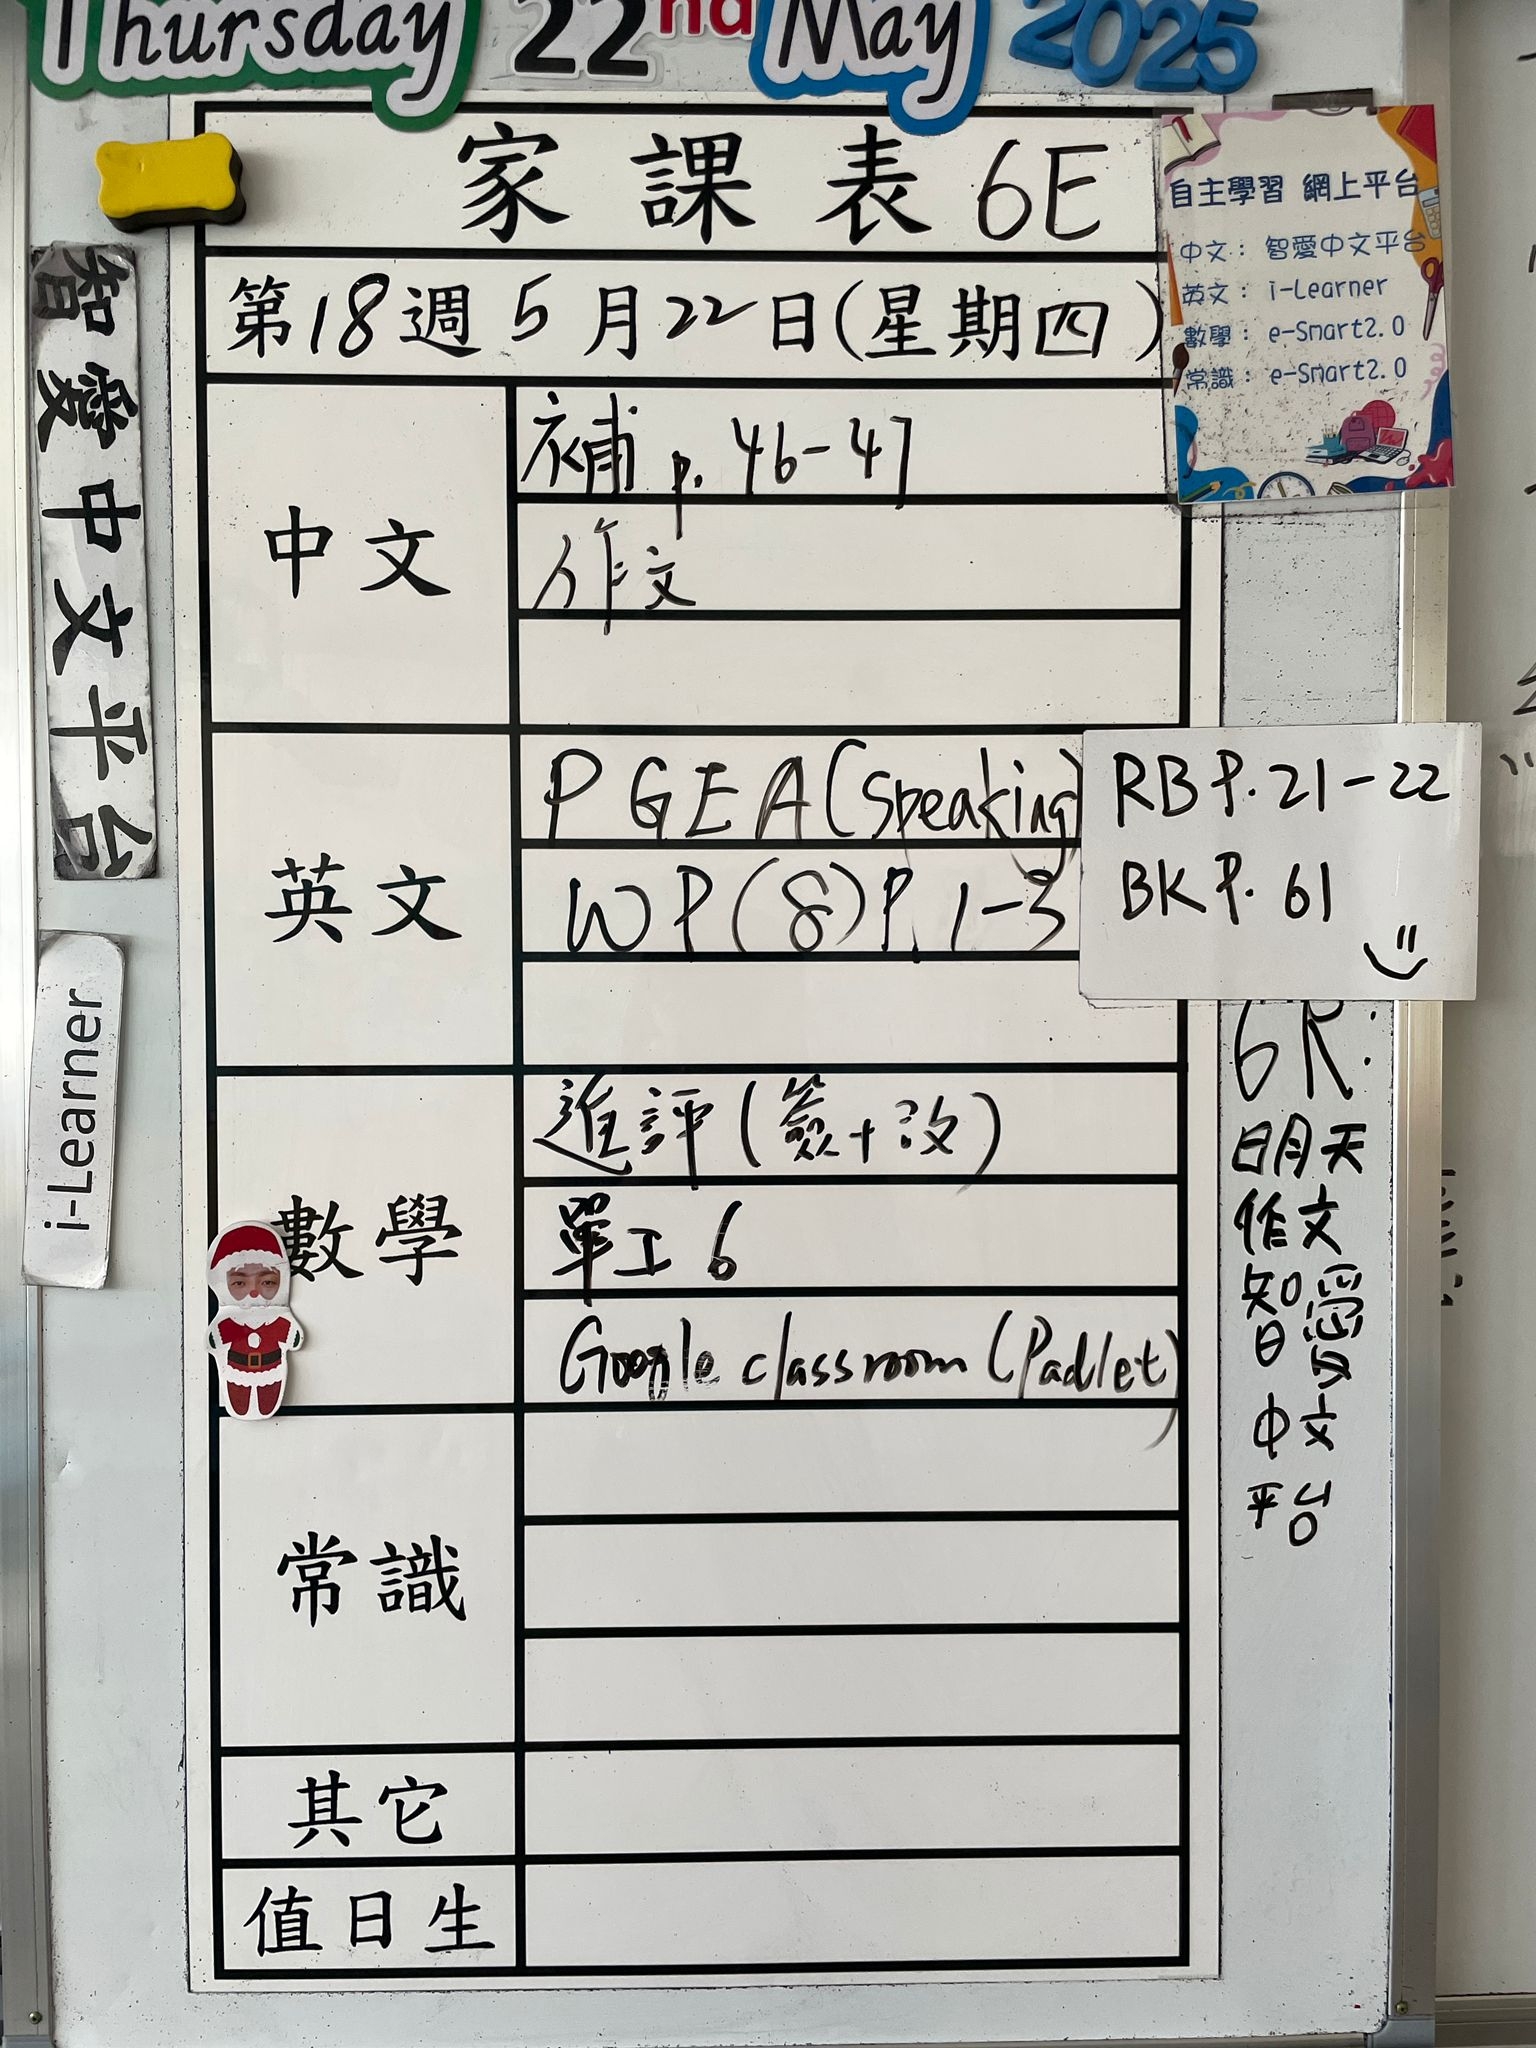 Thursday 22nd May 2025
家課表 6E
第18週5月22日(星期四)
自主學習 網上平台
中文：智愛中文平台
英文：i-Learner
數學：e-Smart2.0
常識：e-Smart2.0
智愛中文平台
i-Learner
中文
補 p. 46-47
作文
英文
PGEA(Speaking)
WP(8)P.1-3
RB P. 21-22
BK P. 61
數學
進評(簽+改)
單工6
Google classroom (Padlet)
常識
其它
值日生
6R:
明天
作文
智愛
中文
平台